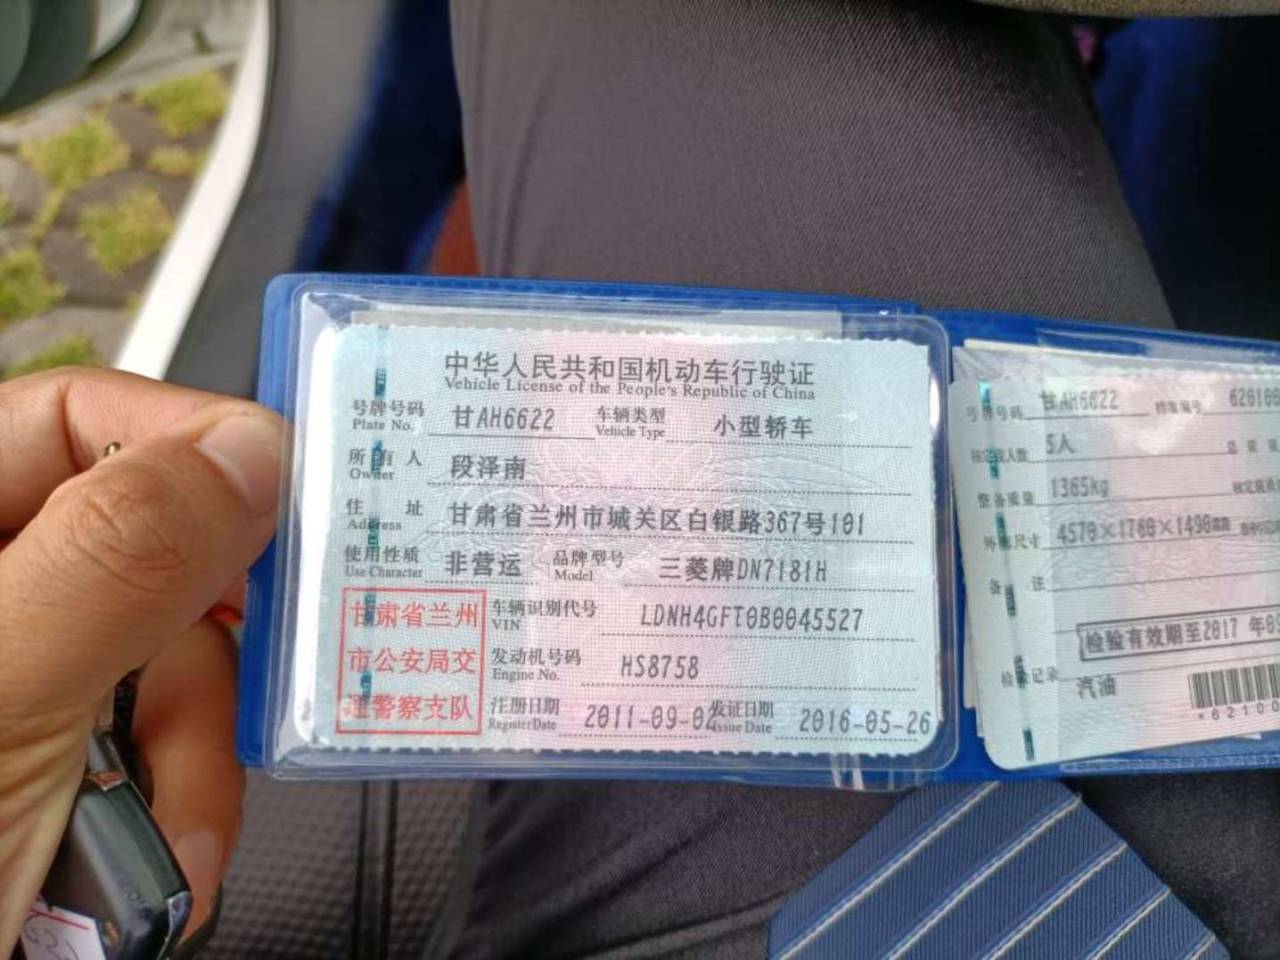 中华人民共和国机动车行驶证
Vehicle License of the People's Republic of China
号牌号码 甘AH6622 车辆类型 小型轿车
Plate No. Vehicle Type
所有人 段泽南
Owner
住址 甘肃省兰州市城关区白银路367号101
Address
使用性质 非营运 品牌型号 三菱牌DN7181H
Use Character Model
甘肃省兰州
市公安局交
通警察支队
车辆识别代号 LDNH4GFT0B0045527
VIN
发动机号码 HS8758
Engine No.
注册日期 2011-09-02 发证日期 2016-05-26
Register Date Issue Date
号牌号码 甘AH6622 档案编号 620100
核定载人数 5人
整备质量 1365kg
外廓尺寸 4570×1760×1490mm
备注
检验有效期至2017年0
检验记录
汽油
*62100